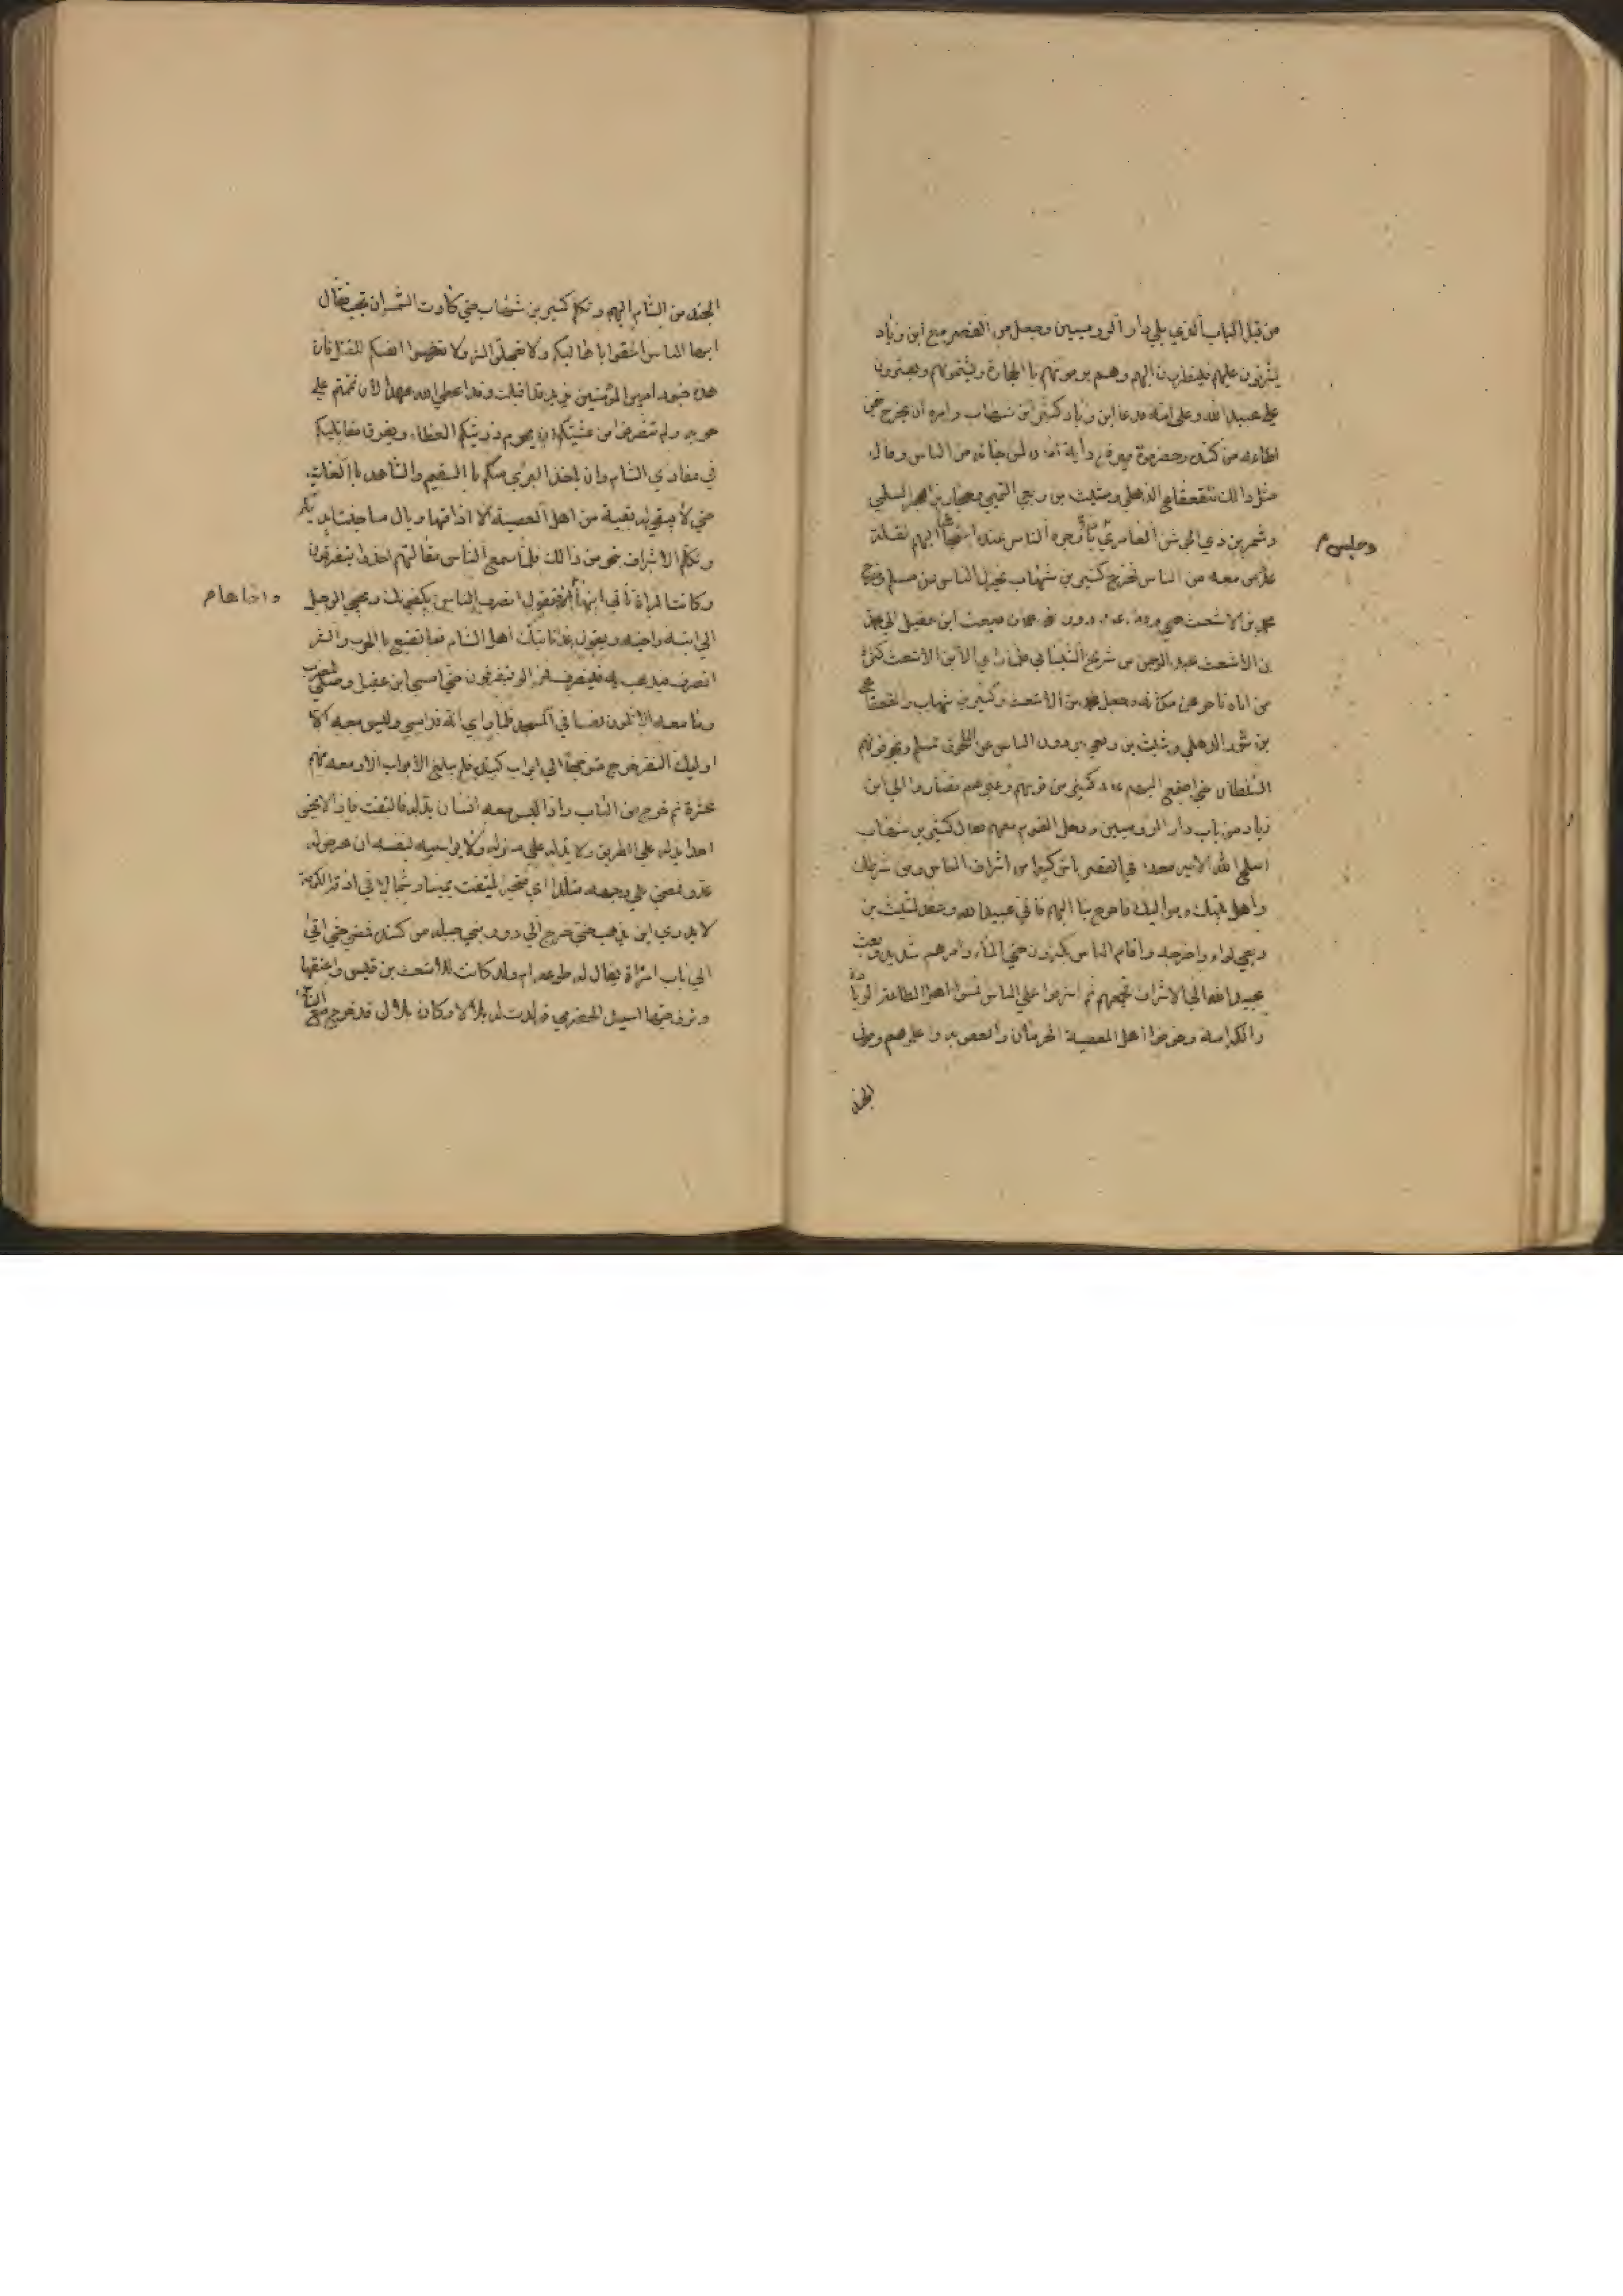 من قبل الباب الذي يلي دار الروميين وجعل من القصر مع ابن زياد
يشرفون عليهم فينظرون اليهم وهم يرمونهم بالحجارة ويشتمونهم ويفترون
على عبيد الله وعلى ابيه فدعا ابن زياد كثير بن شهاب وامره ان يخرج فيمن
اطاعه من كندة وحضرموت فيرفع راية امان لمن جاءه من الناس وقال
مثل ذالك لقعقاع الذهلي وشبث بن ربعي التميمي وحجار بن ابجر السلمي
وشمر بن ذي الجوشن العامري وجوه الناس عنده استيحاشا اليهم لقلة
عدد من معه من الناس فخرج كثير بن شهاب يخذل الناس عن مسلم وخرج
محمد بن الاشعث حتى وقف عند دور بني عمارة فبعث ابن عقيل الى محمد
بن الاشعث عبد الرحمن بن شريح الشبامي فلما رأى ابن الاشعث كثرة
من اتاه تأخر عن مكانه وجعل محمد بن الاشعث وكثير بن شهاب والقعقاع
بن شور الذهلي وشبث بن ربعي يردون الناس عن اللحوق بمسلم ويخوفونهم
السلطان حتى اجتمع اليهم عدد كثير من قومهم وغيرهم فصاروا الى ابن
زياد من باب دار الروميين ودخل القوم معهم فقال كثير بن شهاب
اصلح الله الامير معك في القصر ناس كثير من اشراف الناس ومن شرطك
واهل بيتك ومواليك فاخرج بنا اليهم فابى عبيد الله وعقد لشبث بن
ربعي لواء واخرجه واقام الناس يكثرون حتى المساء وامرهم شديد فبعث
عبيد الله الى الاشراف فجمعهم ثم اشرفوا على الناس فمنوا اهل الطاعة الزيادة
والكرامة وخوفوا اهل المعصية الحرمان والعقوبة واعلموهم وصول
الجند
الجند من الشام اليهم وتكلم كثير بن شهاب حتى كادت الشمس ان تجب فقال
ايها الناس الحقوا باهاليكم ولا تعجلوا الشر ولا تعرضوا انفسكم للقتل فان
هذه جنود امير المؤمنين يزيد قد اقبلت وقد اعطى الله عهدا لان تممتم على
حربه ولم تنصرفوا من عشيتكم ان يحرم ذريتكم العطاء ويفرق مقاتليكم
في مغازي الشام وان ياخذ البرئ منكم بالسقيم والشاهد بالغائب
حتى لا يبقى له بقية من اهل المعصية الا اذاقها وبال ما جنت ايديكم
وتكلم الاشراف بنحو من ذالك فلما سمع الناس مقالتهم اخذوا يتفرقون
وكانت المراة تأتي ابنها فتقول انصرف الناس يكفونك ويجئ الرجل
واخاها م
الى ابنه واخيه ويقول غدا تأتيك اهل الشام فما تصنع بالحرب والشر
انصرف فيذهب به فينصرف فما زالوا يتفرقون حتى امسى ابن عقيل وصلى المغرب
وما معه الا ثلثون نفسا في المسجد فلما رأى انه قد امسى وليس معه الا
اوليك النفر خرج متوجها الى ابواب كندة فلم يبلغ الابواب الا ومعه منهم
عشرة ثم خرج من الباب واذا ليس معه انسان يدله فالتفت فاذا لا يحس
احدا يدله على الطريق ولا يدله على منزله ولا يواسيه بنفسه ان عرض له
عدو فمضى على وجهه متلددا اي متحيرا يلتفت يمينا وشمالا في ازقة الكوفة
لا يدري اين يذهب حتى خرج الى دور بني جبلة من كندة فمضى حتى اتى
الى باب امراة يقال لها طوعة ام ولد كانت للاشعث بن قيس واعتقها
وتزوجها اسيد الحضرمي فولدت له بلالا وكان بلال قد خرج مع الناس